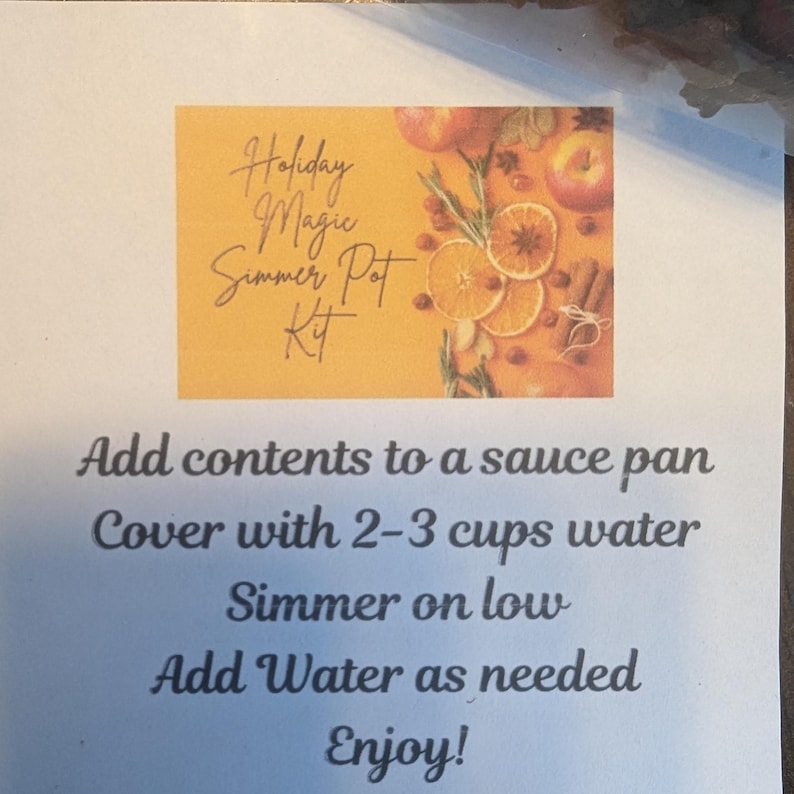 Holiday
Magic
Simmer Pot
Kit
Add contents to a sauce pan
Cover with 2-3 cups water
Simmer on low
Add Water as needed
Enjoy!